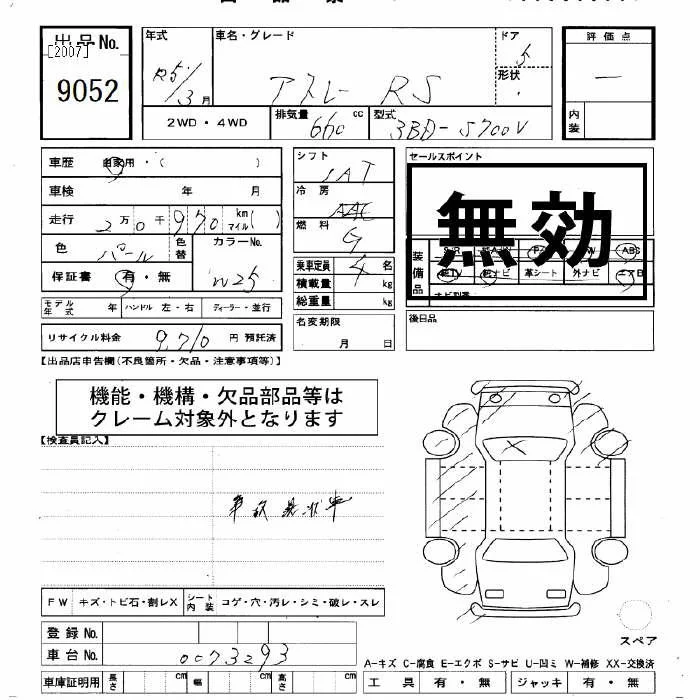 出品No.
[2007]
9052
年式
R5/3月
車名・グレード
アトレー RS
ドア
5
形状
評価点
—
内装
2WD・4WD
排気量 660 cc
型式 3BD-S700V
車歴 自家用・( )
車検 年 月
走行 2万0千970km マイル( )
色 パール 色替 カラーNo. W25
保証書 有・無
モデル年式 年 ハンドル 左・右 ディーラー・並行
リサイクル料金 9,710円 預託済
シフト
IAT
冷房
AAC
燃料
G
乗車定員 4名
積載量 kg
総重量 kg
名変期限
月 日
セールスポイント
無効
装備品
ABS
革シート 外ナビ
後日品
【出品店申告欄(不良箇所・欠品・注意事項等)】
機能・機構・欠品部品等は
クレーム対象外となります
【検査員記入】
車歴 現状車
FW キズ・トビ石・割レX シート内装 コゲ・穴・汚レ・シミ・破レ・スレ
登録No.
車台No. 0073293
車庫証明用 長さ cm 幅 cm 高さ cm
スペア
A-キズ C-腐食 E-エクボ S-サビ U-凹ミ W-補修 XX-交換済
工具 有・無 ジャッキ 有・無